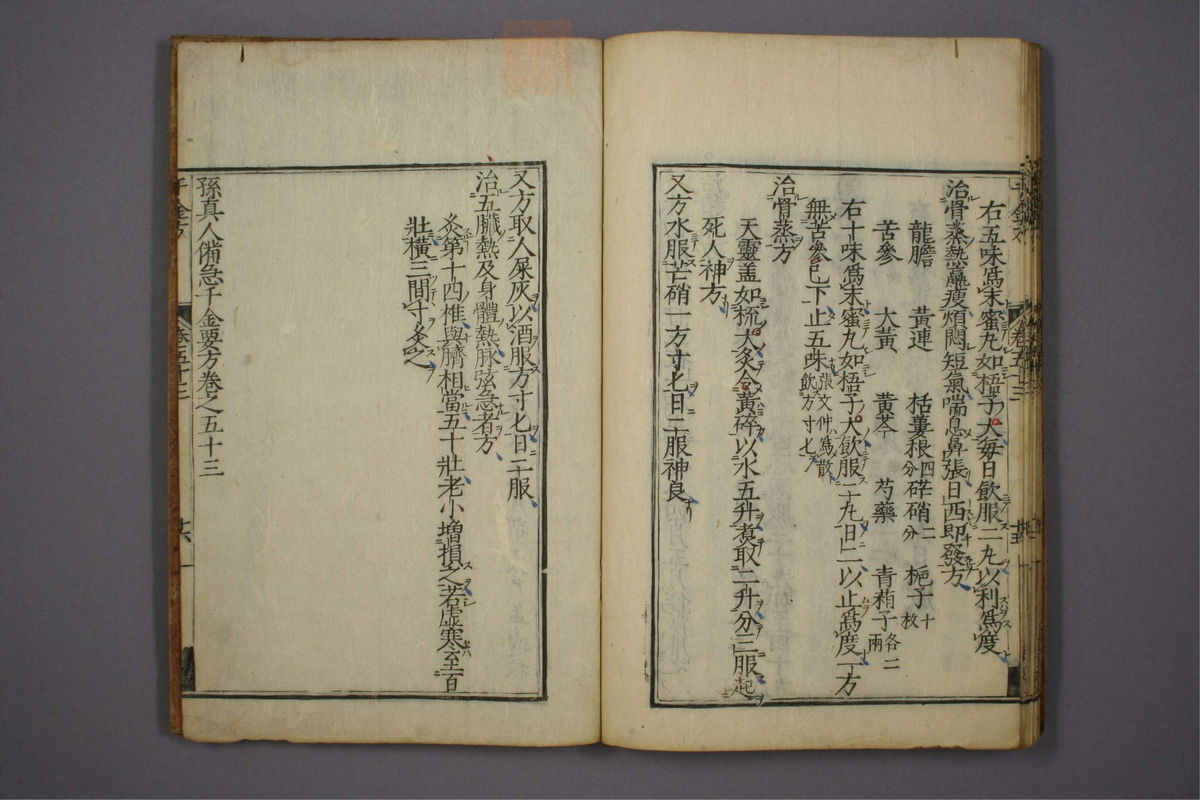 右五味爲末蜜丸如梧子大每日飲服二丸以利爲度
治骨蒸熱羸瘦煩悶短氣喘息鼻張日西即發方
龍膽 黃連 栝蔞根四分 硭硝二分 梔子十枚
苦參 大黃 黃芩 芍藥 青葙子各二兩
右十味爲末蜜丸如梧子大飲服二十丸日二以止爲度一方
無苦參已下止五味張文仲爲散飲方寸匕
治骨蒸方
天靈盖如梳大炙令黃碎以水五升煑取二升分三服起
死人神方
又方水服芒硝一方寸匕日二服神良
又方取人屎灰以酒服方寸匕日二服
治五臟熱及身體熱脉弦急者方
灸第十四椎與臍相當五十壯老小增損之若虛寒至百
壯橫三間寸灸之
孫真人備急千金要方卷之五十三
千金方 卷五十三